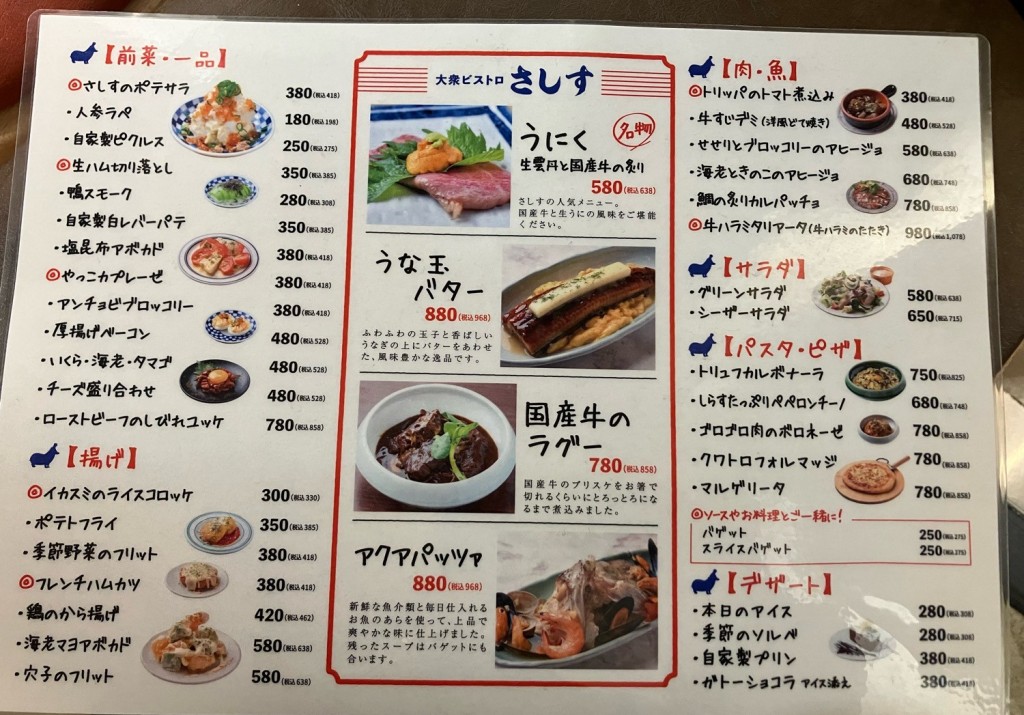 【前菜・一品】
◎さしすのポテサラ 380(税込418)
・人参ラペ 180(税込198)
・自家製ピクルス 250(税込275)
◎生ハム切り落とし 350(税込385)
・鴨スモーク 280(税込308)
・自家製白レバーパテ 350(税込385)
・塩昆布アボカド 380(税込418)
◎やっこカプレーゼ 380(税込418)
・アンチョビブロッコリー 380(税込418)
・厚揚げベーコン 480(税込528)
・いくら・海老・タマゴ 480(税込528)
・チーズ盛り合わせ 480(税込528)
・ローストビーフのしびれユッケ 780(税込858)
【揚げ】
◎イカスミのライスコロッケ 300(税込330)
・ポテトフライ 350(税込385)
・季節野菜のフリット 380(税込418)
◎フレンチハムカツ 380(税込418)
・鶏のから揚げ 420(税込462)
・海老マヨアボカド 580(税込638)
・穴子のフリット 580(税込638)
大衆ビストロ さしす
うにく
名物
生雲丹と国産牛の炙り
580(税込638)
さしすの人気メニュー。
国産牛と生うにの風味をご堪能
ください。
うな玉
バター
880(税込968)
ふわふわの玉子と香ばしい
うなぎの上にバターをあわせ
た、風味豊かな逸品です。
国産牛の
ラグー
780(税込858)
国産牛のブリスケをお箸で
切れるくらいにとろっとろにな
るまで煮込みました。
アクアパッツァ
880(税込968)
新鮮な魚介類と毎日仕入れる
お魚のあらを使って、上品で
爽やかな味に仕上げました。
残ったスープはバゲットにも
合います。
【肉・魚】
◎トリッパのトマト煮込み 380(税込418)
・牛すじデミ(洋風どて焼き) 480(税込528)
・せせりとブロッコリーのアヒージョ 580(税込638)
・海老ときのこのアヒージョ 680(税込748)
・鯛の炙りカルパッチョ 780(税込858)
◎牛ハラミタリアータ(牛ハラミのたたき) 980(税込1,078)
【サラダ】
・グリーンサラダ 580(税込638)
・シーザーサラダ 650(税込715)
【パスタ・ピザ】
・トリュフカルボナーラ 750(税込825)
・しらすたっぷりペペロンチーノ 680(税込748)
・ゴロゴロ肉のボロネーゼ 780(税込858)
・クワトロフォルマッジ 780(税込858)
・マルゲリータ 780(税込858)
◎ソースやお料理とご一緒に!
バゲット 250(税込275)
スライスバゲット 250(税込275)
【デザート】
・本日のアイス 280(税込308)
・季節のソルベ 280(税込308)
・自家製プリン 380(税込418)
・ガトーショコラ アイス添え 380(税込418)